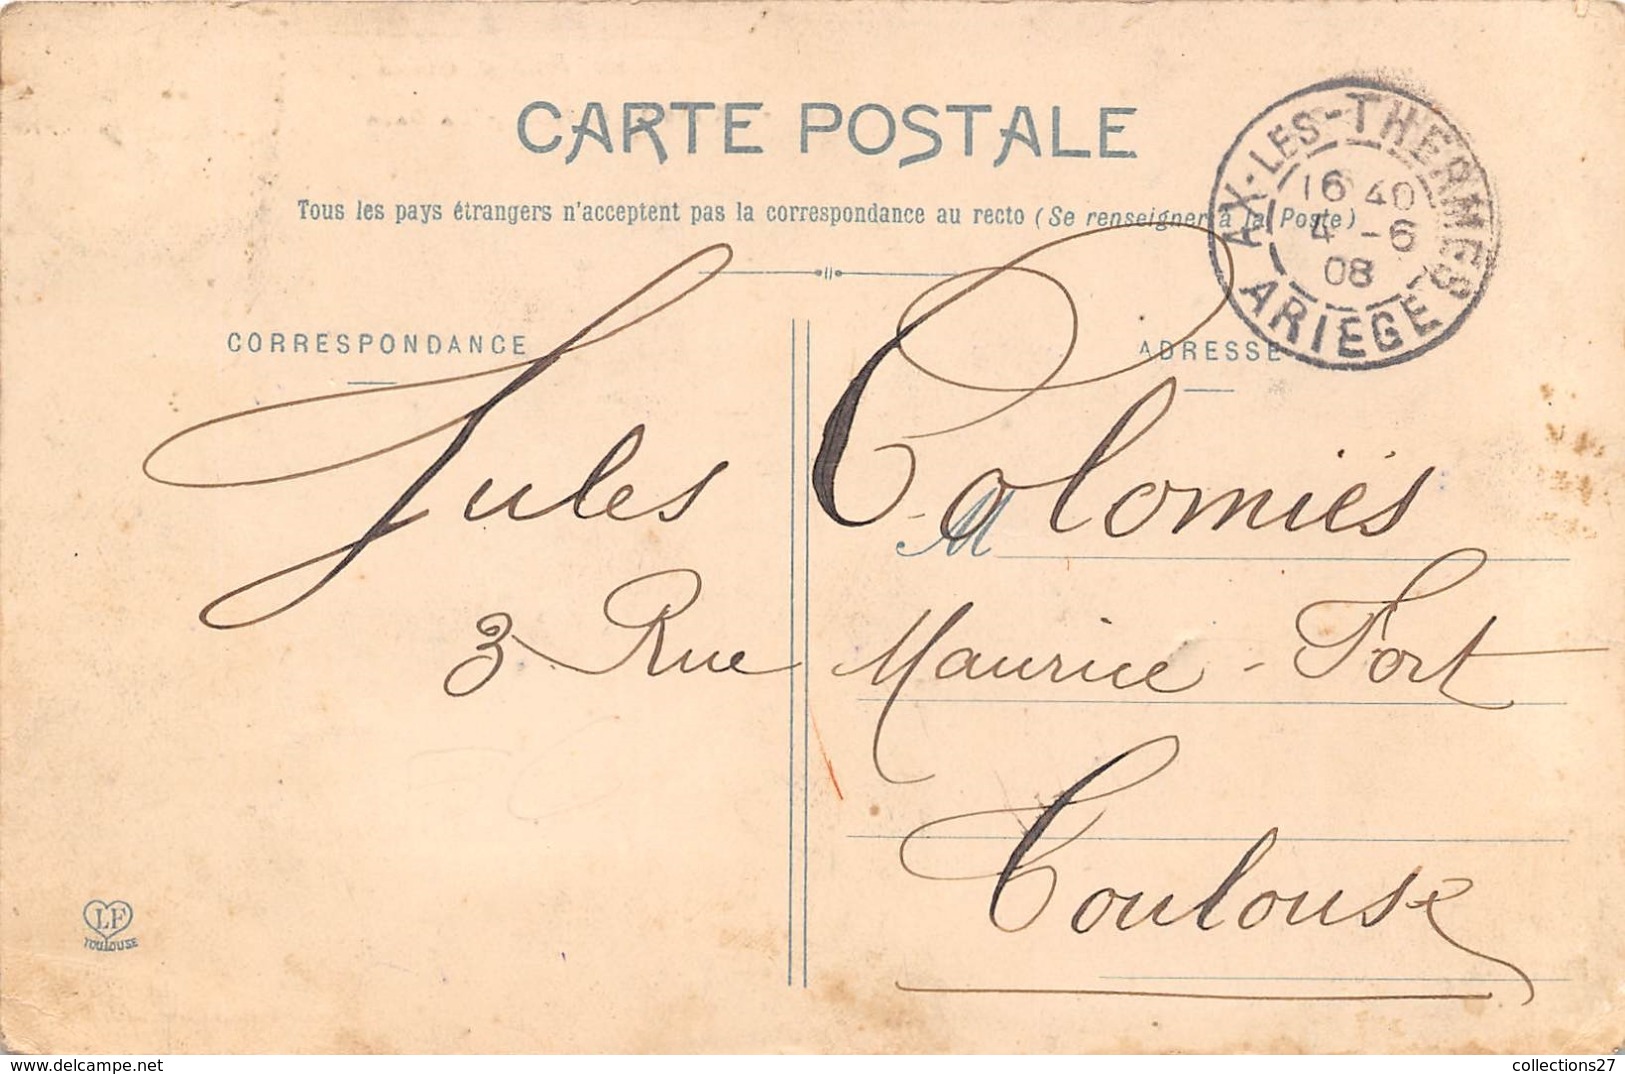 CARTE POSTALE
Tous les pays étrangers n'acceptent pas la correspondance au recto (Se renseigner à la Poste)
AX-LES-THERMES
16 40
4 - 6
08
ARIEGE
CORRESPONDANCE
ADRESSE
Jules Colomiës
M
3 Rue Maurice-Fort
Toulouse
LF
TOULOUSE
www.delcampe.net
collections27